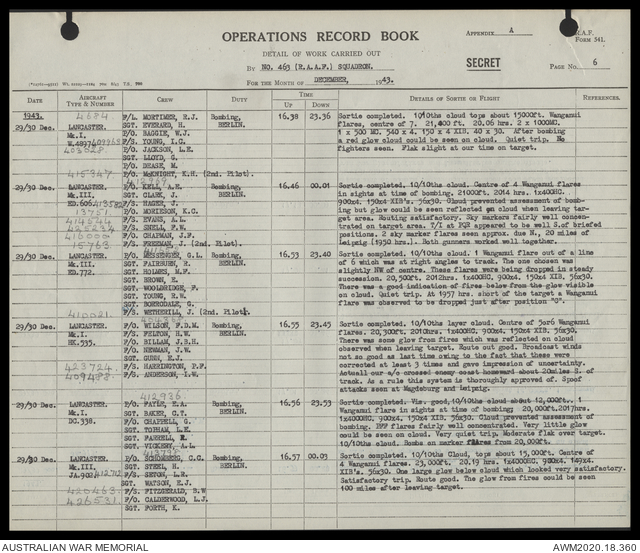 OPERATIONS RECORD BOOK
APPENDIX A
R.A.F. FORM 541.
DETAIL OF WORK CARRIED OUT
BY NO. 463 (R.A.A.F.) SQUADRON.
SECRET
PAGE NO. 6
FOR THE MONTH OF DECEMBER, 1943.
DATE
AIRCRAFT TYPE & NUMBER
CREW
DUTY
TIME
UP
DOWN
DETAILS OF SORTIE OR FLIGHT
REFERENCES.
1943.
29/30 Dec.
LANCASTER. Mk.I. W.4897
F/L. MORTIMER, R.J.
SGT. EVERARD, H.
P/O. BAGGIE, W.J.
F/S. YOUNG, I.C.
P/O. JACKSON, L.E.
SGT. LLOYD, G.
F/O. DEASE, M.
F/O. McKNIGHT, K.H. (2nd. Pilot).
Bombing, BERLIN.
16.38 23.36
Sortie completed. 10/10ths cloud tops about 15000ft. Wanganui
flares, centre of 7. 21,800 ft. 20.06 hrs. 2 x 1000MC.
1 x 500 MC. 540 x 4. 150 x 4 XIB. 40 x 30. After bombing
a red glow cloud could be seen on cloud. Quiet trip. No
fighters seen. Flak slight at our time on target.
29/30 Dec.
LANCASTER. Mk.III. ED.606
P/O. KELL, A.E.
SGT. CLARK, J.
F/S. HAGER, J.
F/O. MORIESON, K.C.
F/S. EVANS, A.L.
F/S. SNELL, F.W.
F/O. CHAPMAN, J.F.
F/S. FREEMAN, J. (2nd. Pilot).
Bombing, BERLIN.
16.46 00.01
Sortie completed. 10/10ths cloud. Centre of 4 Wanganui flares
in sights at time of bombing. 21000ft, 2014 hrs. 1x400HC,
900x4. 150x4 XIB's. 56x30. Cloud prevented assessment of bomb-
ing but glow could be seen reflected on cloud when leaving tar-
get area. Routing satisfactory. Sky markers fairly well concen-
trated on target area. T/I at PQR appeared to be well S.of briefed
positions. 2 sky marker flares seen approx. due N., 20 miles of
Leipzig (1950 hrs.). Both gunners worked well together.
29/30 Dec.
LANCASTER. Mk.III. ED.772.
P/O. MESSENGER, G.L.
SGT. FAIRBURN, R.
SGT. HOLMES, M.F.
SGT. BROWN, E.
SGT. WOOLDRIDGE, F.
SGT. YOUNG, R.W.
SGT. BORROWDALE, G.
F/S. WETHERILL, J. (2nd Pilot).
Bombing, BERLIN.
16.53 23.40
Sortie completed. 10/10ths cloud. 1 Wanganui flare out of a line
of 6 which was at right angles to track. The one chosen was
slightly NW of centre. These flares were being dropped in steady
succession. 20,500ft. 2012hrs. 1x400HC, 900x4, 150x4 XIB, 56x30.
There was a good indication of fires below from the glow visible
on cloud. Quiet trip. At 1957 hrs. short of the target a Wanganui
flare was observed to be dropped just after position "G".
29/30 Dec.
LANCASTER. Mk.I. HK.535.
F/O. WILSON, F.D.M.
F/S. FELTON, H.W.
F/O. BILLAM, J.B.H.
F/O. NEWMAN, J.W.
SGT. GUNN, E.J.
F/S. HARRINGTON, P.F.
F/O. ANDERSON, I.W.
Bombing, BERLIN.
16.55 23.45
Sortie completed. 10/10ths layer cloud. Centre of 5or6 Wanganui
flares. 20,300ft. 2010hrs. 1x400HC, 900x4, 150x4 XIB, 56x30.
There was some glow from fires which was reflected on cloud
observed when leaving target. Route out good. Broadcast winds
not so good as last time owing to the fact that these were
corrected at least 3 times and gave impression of uncertainty.
Actual our a/c crossed enemy coast homeward about 20miles S. of
track. As a rule this system is thoroughly approved of. Spoof
attacks seen at Magdeburg and Leipzig.
29/30 Dec.
LANCASTER. Mk.I. DC.338.
P/O. FAYLE, E.A.
SGT. BAKER, C.T.
F/O. CHAPPELL, G.
SGT. TOPHAM, L.E.
SGT. FARRELL, R.
SGT. VICKERY, A.L.
Bombing, BERLIN.
16.56 23.53
Sortie completed. Vis. good, 10/10ths cloud about 12,000ft. 1
Wanganui flare in sights at time of bombing; 20,000ft. 2017hrs.
1x4000HC 900x4, 150x4 XIB, 56x30. Cloud prevented assessment of
bombing. PFF flares fairly well concentrated. Very little glow
could be seen on cloud. Very quiet trip. Moderate flak over target.
10/10ths cloud. Bombs on marker flares from 20,000ft.
29/30 Dec.
LANCASTER. Mk.III. JA.902
P/O. SCHOMBERG, C.C.
SGT. STEEL, H.
F/S. SETON, L.R.
SGT. WATSON, E.J.
F/S. FITZGERALD, B.W
F/O. CALDERWOOD, L.J.
SGT. FORTH, K.
Bombing, BERLIN.
16.57 00.03
Sortie completed. 10/10ths Cloud, tops about 15,000ft. Centre of
4 Wanganui flares. 23,000 ft. 20.19 hrs. 1x4000HC, 900x4, 149x4.
XIB's. 56x30. One large glow below cloud which looked very satisfactory.
Satisfactory trip. Route good. The glow from fires could be seen
100 miles after leaving target.
AUSTRALIAN WAR MEMORIAL
AWM2020.18.360